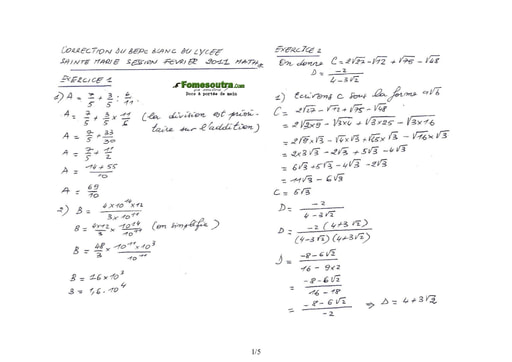 CORRECTION DU BEPC BLANC DU LYCEE
SAINTE MARIE SESSION FEVRIER 2011 MATHS
EXERCICE 1
Fomesoutra.com
Docs à portée de main
1) A = 7/5 + 3/5 : 6/11
A = 7/5 + 3/5 × 11/6 (la division est prioritaire sur l'addition)
A = 7/5 + 33/30
A = 7/5 + 11/2
A = 14+55/10
A = 69/10
2) B = 4×10^14×12 / 3×10^11
B = 4×12/3 × 10^14/10^11 (on simplifie)
B = 48/3 × 10^11×10^3 / 10^11
B = 16×10^3
B = 1,6·10^4
EXERCICE 2
On donne C = 2√27 - √12 + √75 - √48
D = -2 / 4-3√2
1) Ecrivons C sous la forme a√b
C = 2√27 - √12 + √75 - √48
= 2√3×9 - √3×4 + √3×25 - √3×16
= 2√9×√3 - √4×√3 + √25×√3 - √16×√3
= 2×3√3 - 2√3 + 5√3 - 4√3
= 6√3 + 5√3 - 4√3 - 2√3
= 11√3 - 6√3
C = 5√3
D = -2 / 4-3√2
D = -2(4+3√2) / (4-3√2)(4+3√2)
D = -8-6√2 / 16-9×2
= -8-6√2 / 16-18
= -8-6√2 / -2 ⇒ D = 4+3√2
1/5